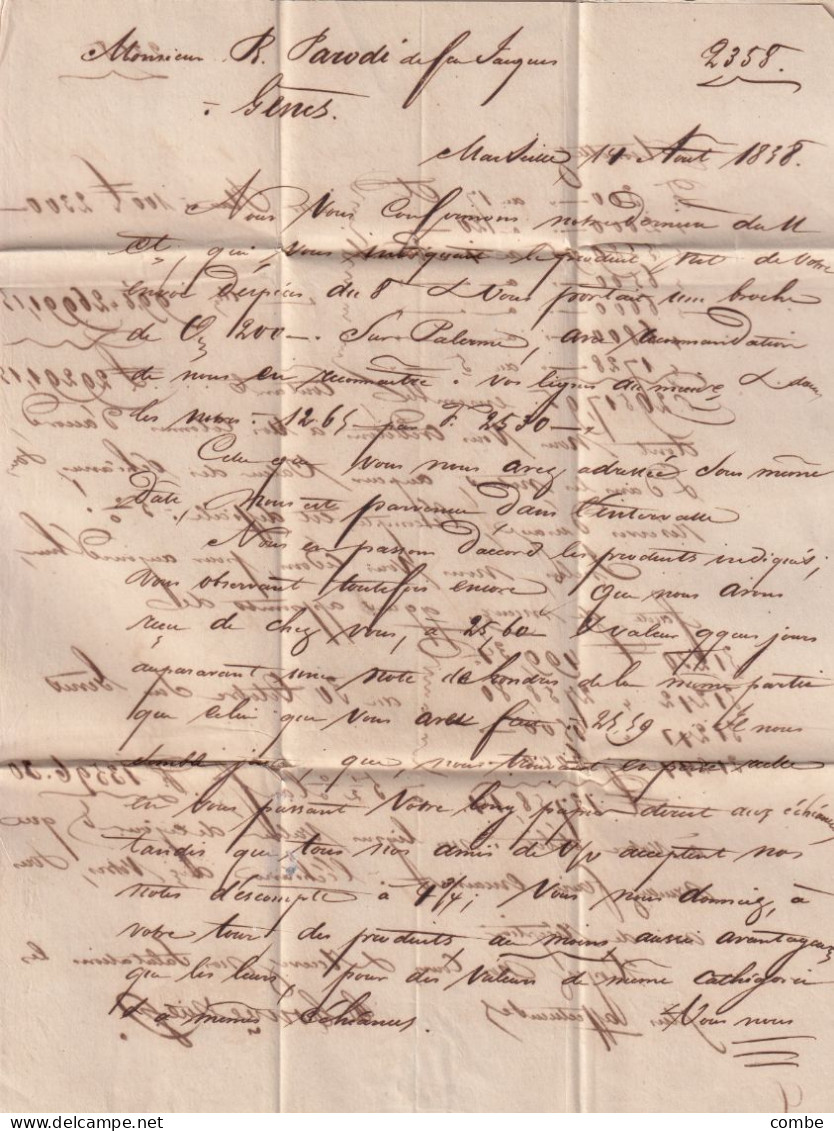 Monsieur R. Parodi de feu Jacques 2358.
Gênes.
Marseille, 14 Aout 1838.
Nous Vous confirmons notre dernier du 11
ct, qui, vous indiquait le produit, net de votre
envoi d'espèces du 8 & Vous portait une broche
de O/z 200 — Sur Palerme, avec recommandation
de nous en reconnaître. Vos lignes du même & dans
les notes: 1265 pr F. 2530 —
Celle que vous nous avez adressée sous même
date, nous est parvenue dans l'intervalle
Nous en passons d'accord les produits indiqués;
Vous observant toutefois encore que nous avons
reçu de chez vous, à 25,60 & valeur qques jours
auparavant une note de Londres de la même partie
que celui que vous avez fait 25.59 Il nous
semble juste que, nous
en vous passant Votre long papier direct aux échéances,
tandis que tous nos amis de V/v acceptent nos
notes d'escompte à 4 3/4; Vous nous donniez, à
votre tour des produits au moins aussi avantageux
que les leurs, pour des Valeurs de même cathégorie
& à mêmes échéances. Vous nous
combe